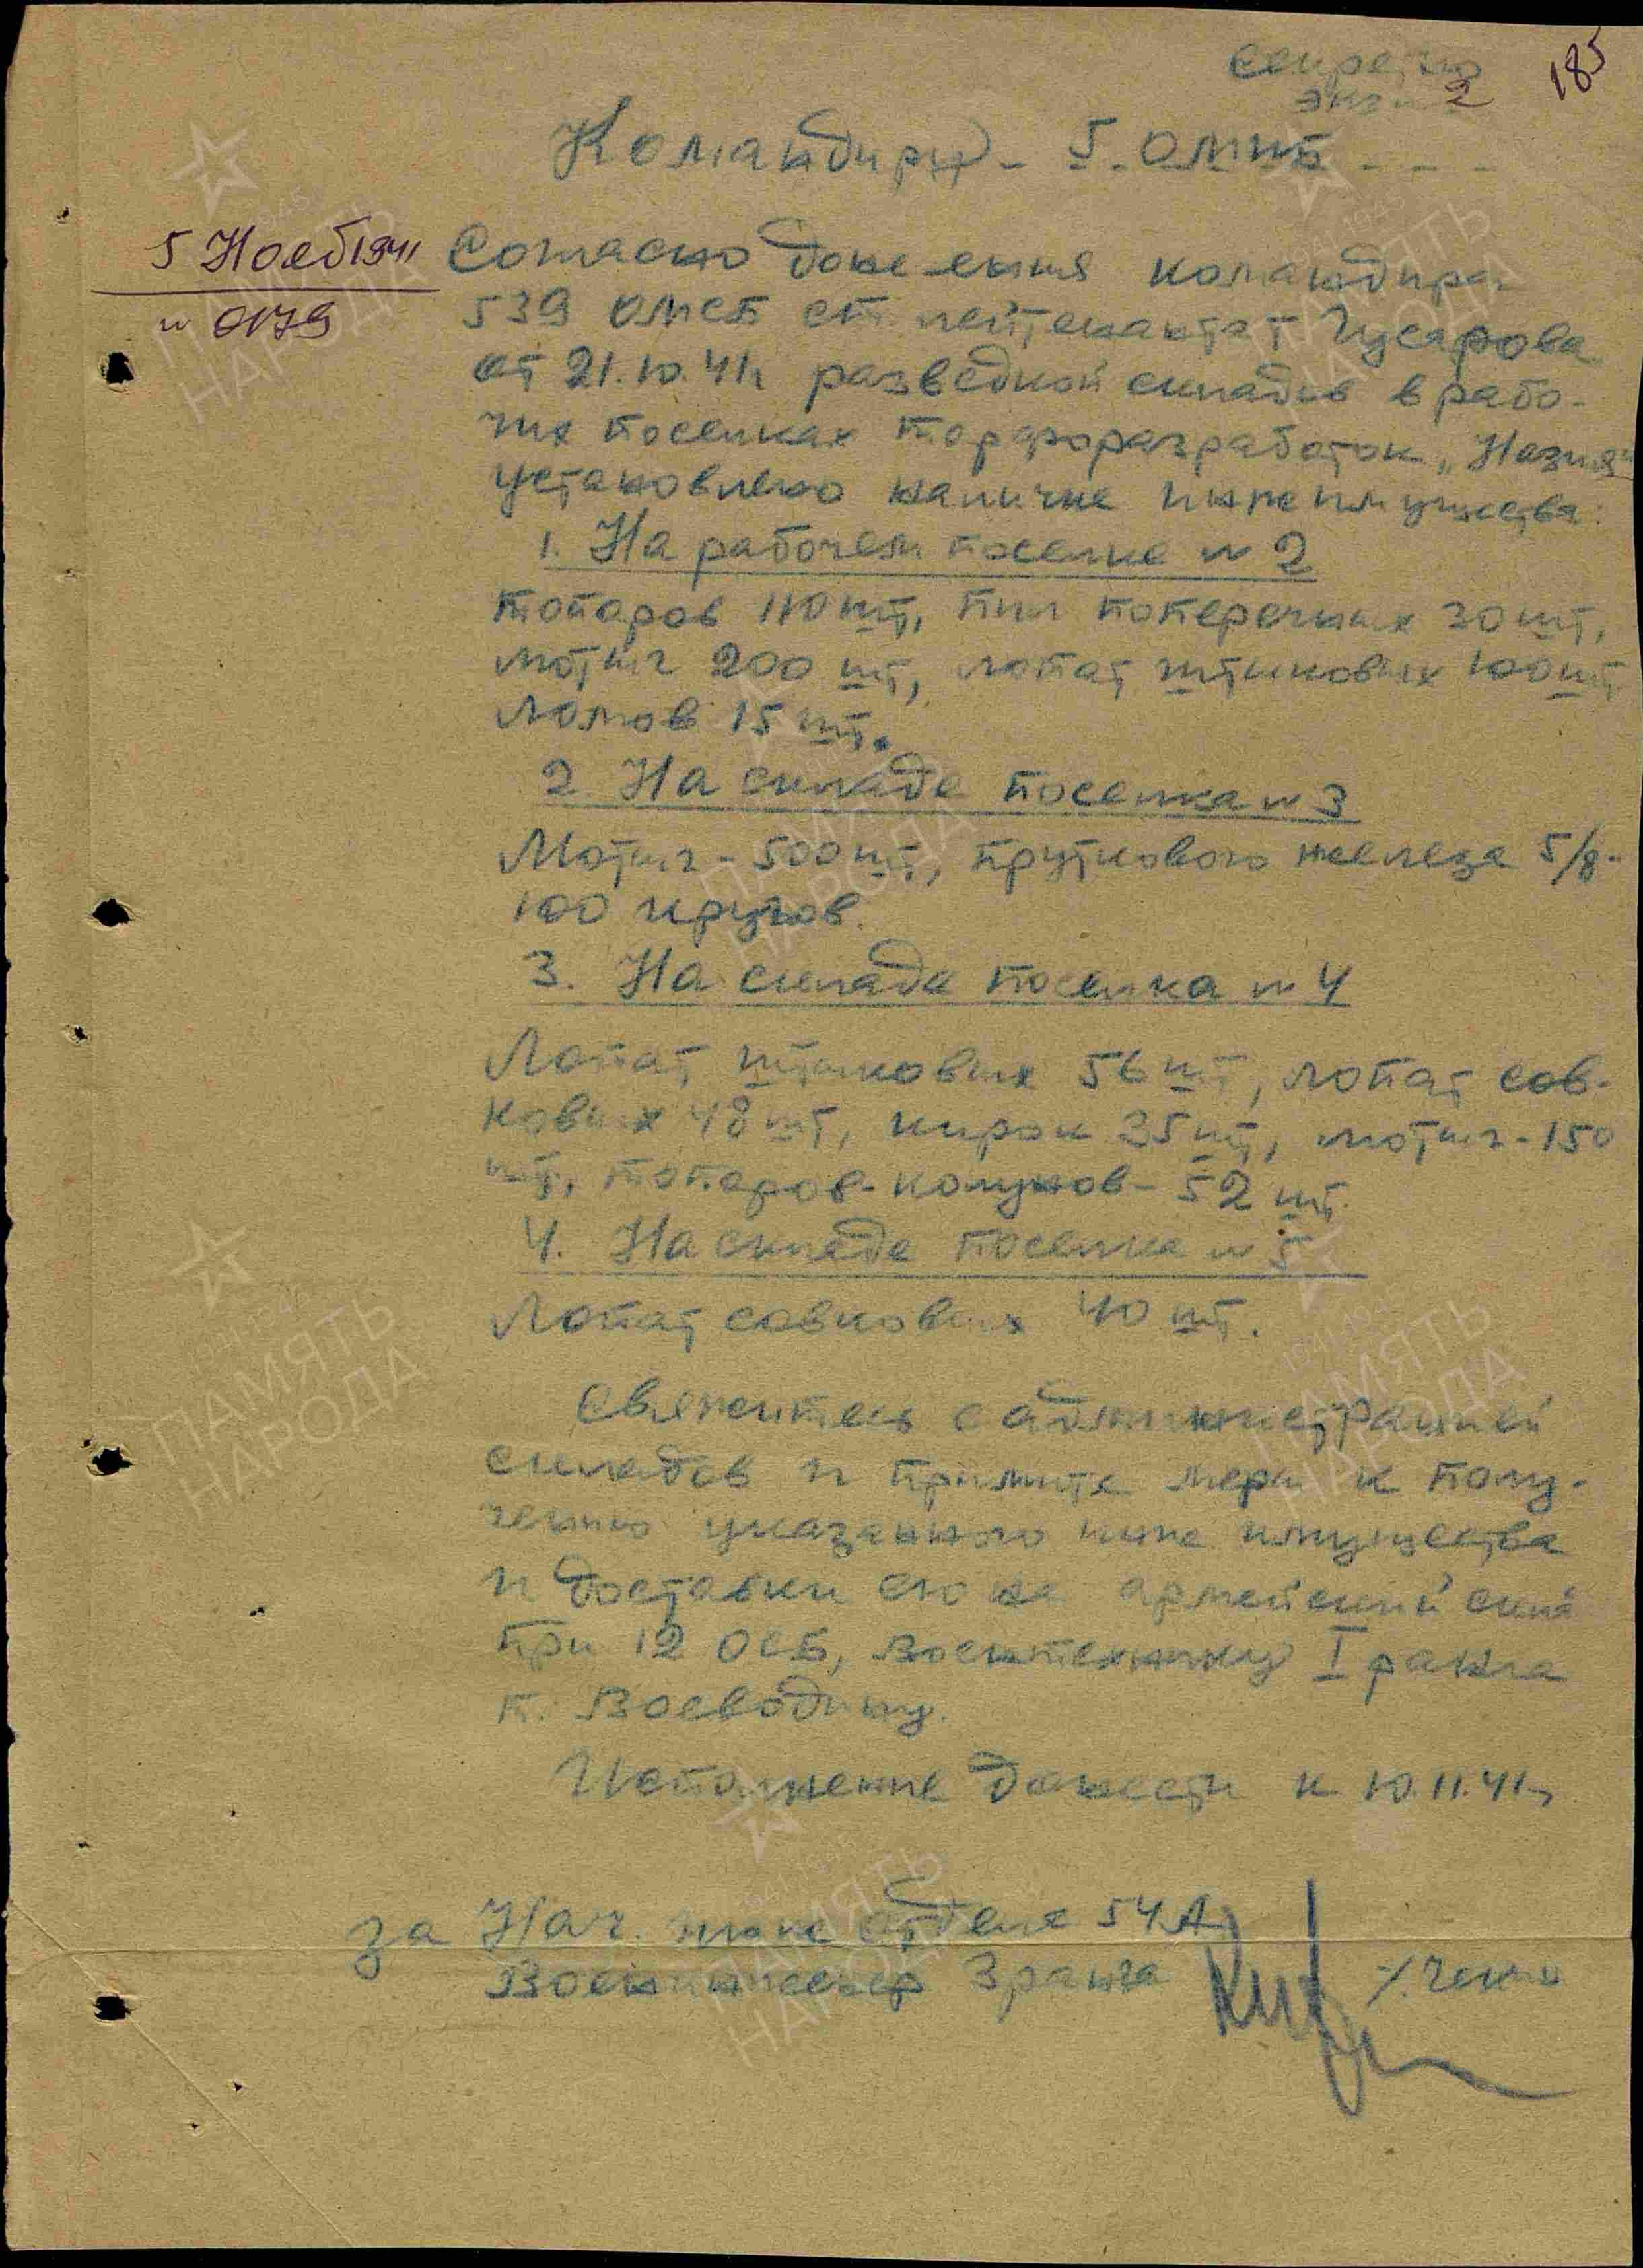 Секретно
экз. № 2
185
Командиру 5. ОМИБ
5 Нояб 1941
№ 0179
Согласно донесения командира
539 ОМСБ ст. лейтенанта т Гусарова
от 21.10.41г. разведкой складов в рабо-
чих поселках торфоразработок „Назия“
установлено наличие инж имущества:
1. На рабочем поселке № 2
топоров 110 шт, пил поперечных 30 шт,
мотыг 200 шт, лопат штыковых 100 шт
ломов 15 шт.
2. На складе поселка № 3
Мотыг - 500 шт, пруткового железа 5/8 -
100 кругов.
3. На складе поселка № 4
Лопат штыковых 56 шт, лопат сов-
ковых 48 шт, кирок 35 шт, мотыг - 150
шт, топоров-колунов - 52 шт.
4. На складе поселка № 5
Лопат совковых 40 шт.
Свяжитесь с администрацией
складов и примите меры к полу-
чению указанного инж имущества
и доставки его на армейский склад
при 12 ОСБ, Воентехнику I ранга
т. Воеводину.
Исполнение донести к 10.11.41г.
за Нач. инж отдела 54 А
Военинженер 3 ранга
ПАМЯТЬ
НАРОДА